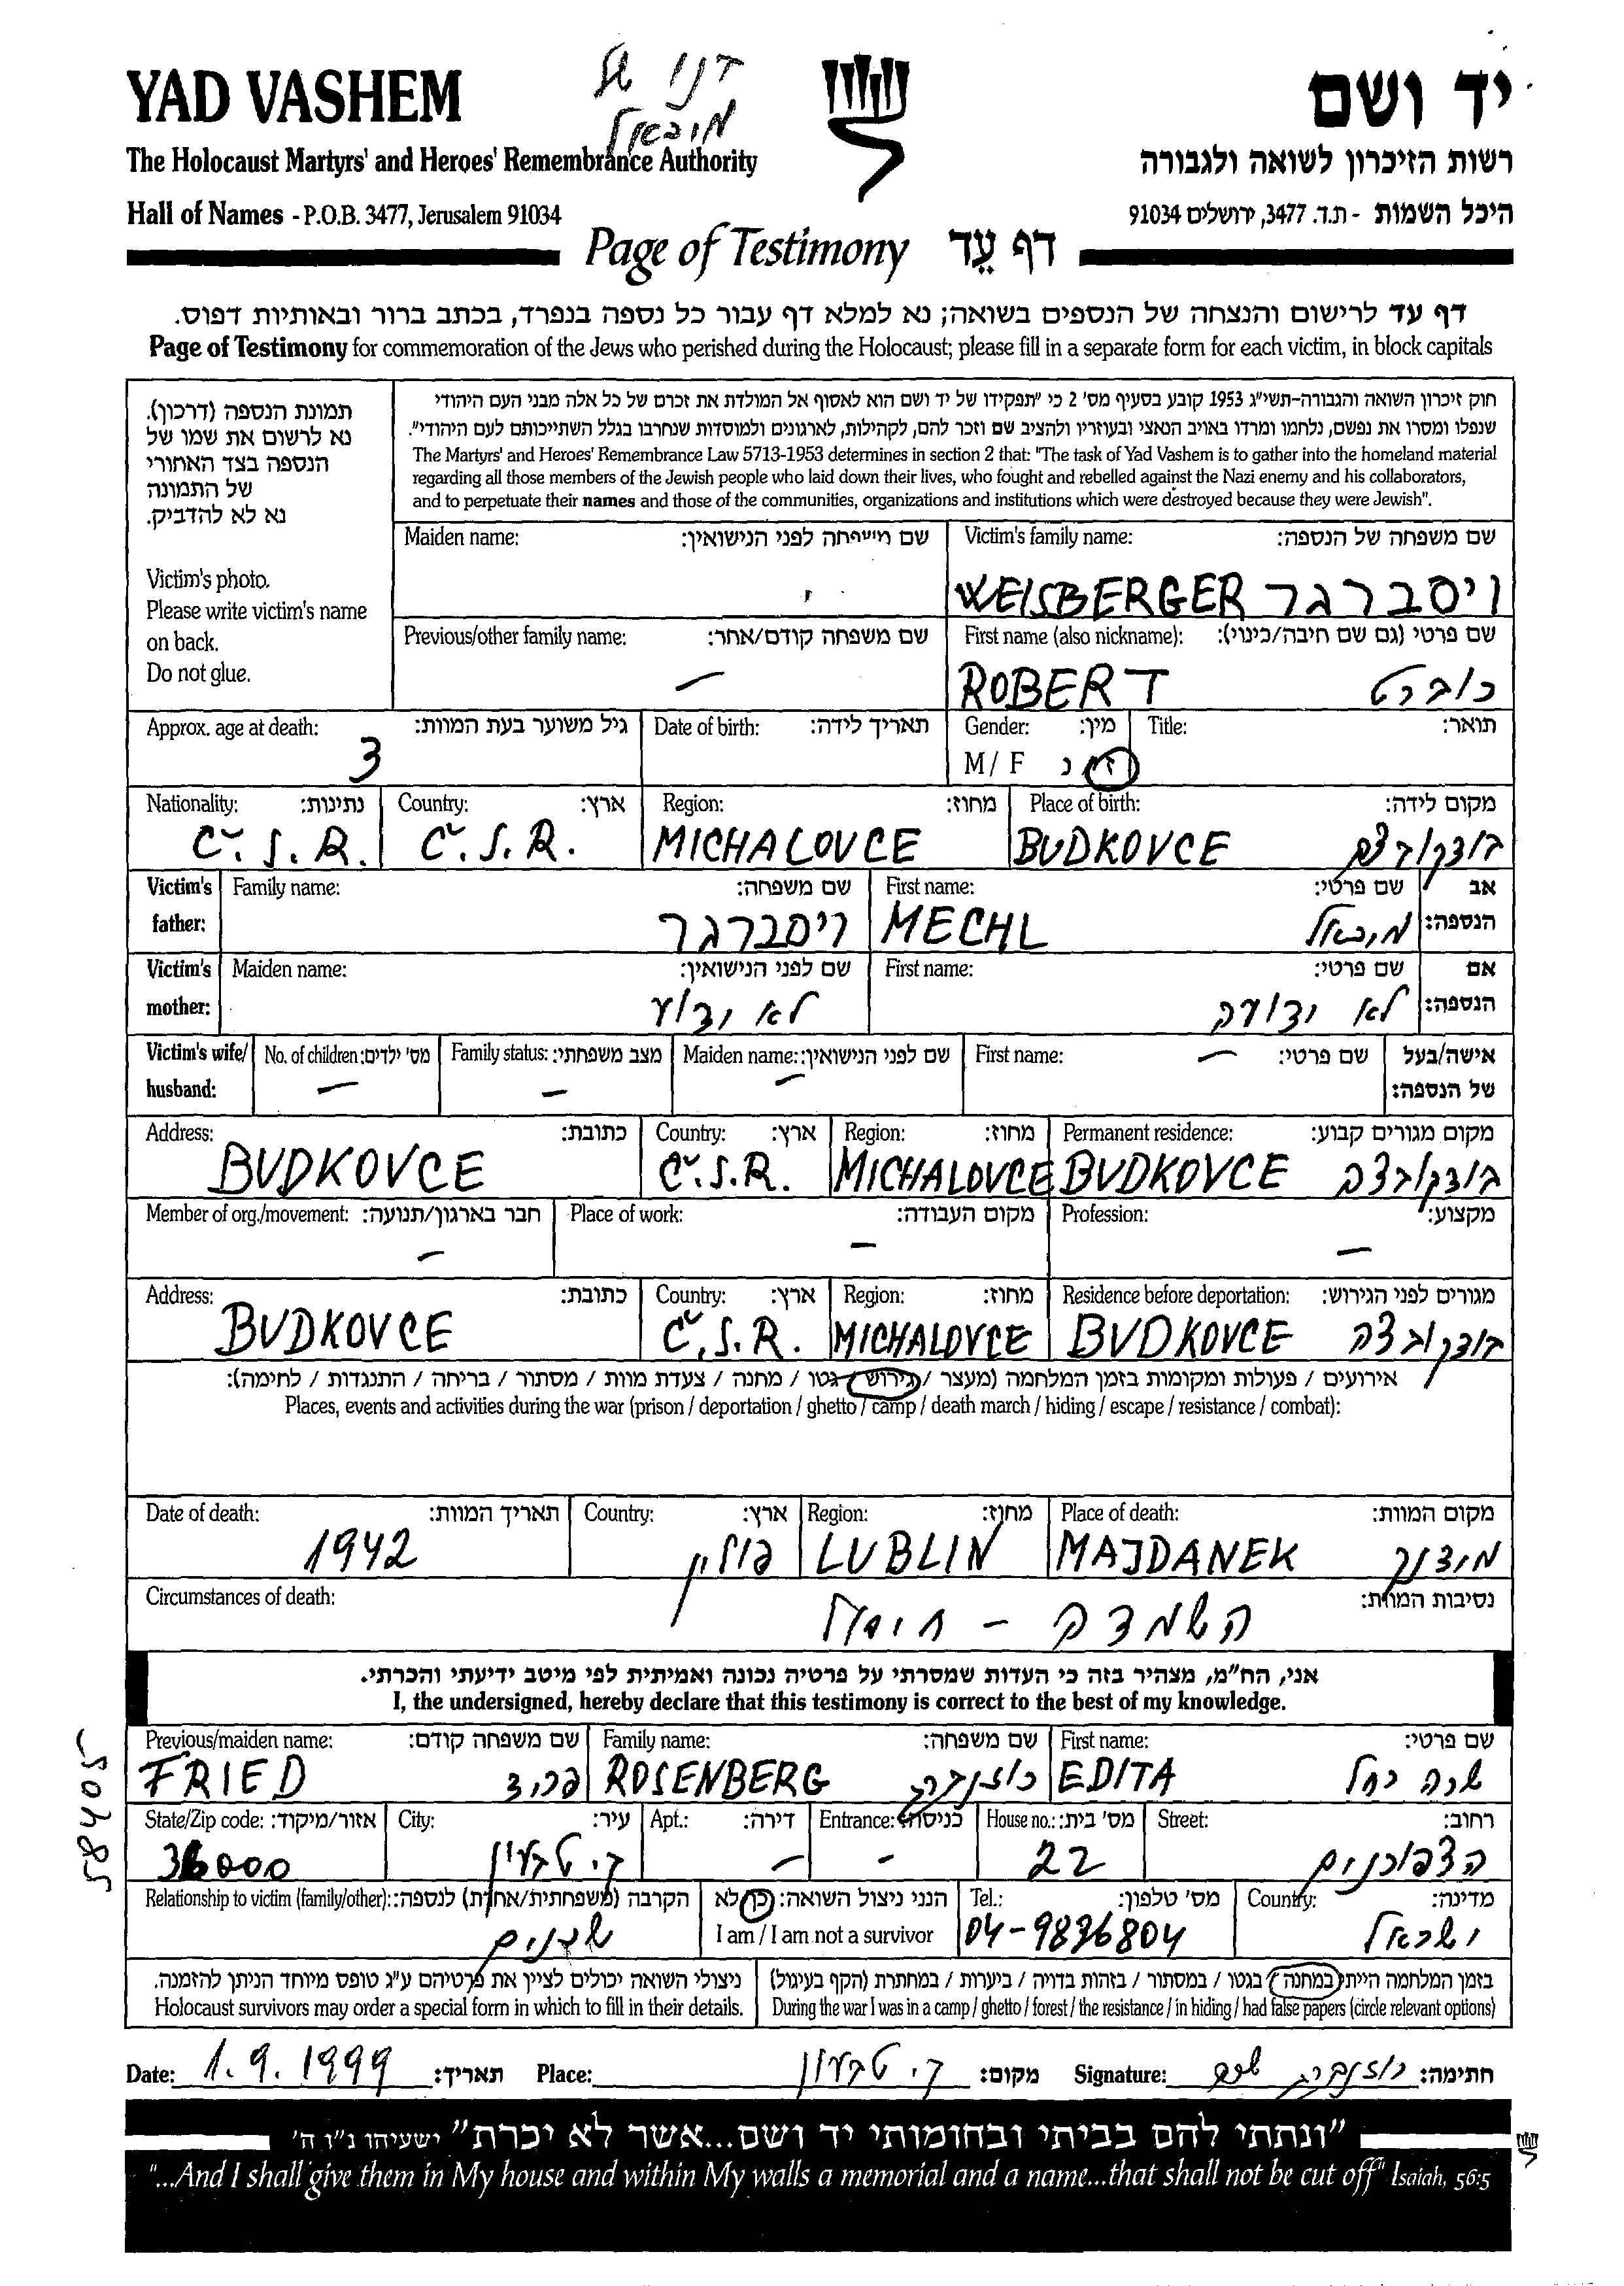 YAD VASHEM
בנו של
מיכאל
יד ושם
The Holocaust Martyrs' and Heroes' Remembrance Authority
רשות הזיכרון לשואה ולגבורה
Hall of Names - P.O.B. 3477, Jerusalem 91034
היכל השמות - ת.ד. 3477, ירושלים 91034
Page of Testimony דף עֵד
דף עד לרישום והנצחה של הנספים בשואה; נא למלא דף עבור כל נספה בנפרד, בכתב ברור ובאותיות דפוס.
Page of Testimony for commemoration of the Jews who perished during the Holocaust; please fill in a separate form for each victim, in block capitals
תמונת הנספה (דרכון).
נא לרשום את שמו של
הנספה בצד האחורי
של התמונה
נא לא להדביק.
Victim's photo.
Please write victim's name
on back.
Do not glue.
חוק זיכרון השואה והגבורה-תשי"ג 1953 קובע בסעיף מס' 2 כי "תפקידו של יד ושם הוא לאסוף אל המולדת את זכרם של כל אלה מבני העם היהודי
שנפלו ומסרו את נפשם, נלחמו ומרדו באויב הנאצי ובעוזריו ולהציב שם וזכר להם, לקהילות, לארגונים ולמוסדות שנחרבו בגלל השתייכותם לעם היהודי".
The Martyrs' and Heroes' Remembrance Law 5713-1953 determines in section 2 that: "The task of Yad Vashem is to gather into the homeland material
regarding all those members of the Jewish people who laid down their lives, who fought and rebelled against the Nazi enemy and his collaborators,
and to perpetuate their names and those of the communities, organizations and institutions which were destroyed because they were Jewish".
Maiden name: שם משפחה לפני הנישואין: Victim's family name: שם משפחה של הנספה:
WEISBERGER ויסברגר
Previous/other family name: שם משפחה קודם/אחר: First name (also nickname): שם פרטי (גם שם חיבה/כינוי):
– ROBERT רוברט
Approx. age at death: גיל משוער בעת המוות: Date of birth: תאריך לידה: Gender: מין: Title: תואר:
3 M / F ז / נ
Nationality: נתינות: Country: ארץ: Region: מחוז: Place of birth: מקום לידה:
Č.S.R. Č.S.R. MICHALOVCE BUDKOVCE בודקובצה
Victim's father: Family name: שם משפחה: First name: שם פרטי: אב הנספה:
ויסברגר MECHL מיכאל
Victim's mother: Maiden name: שם לפני הנישואין: First name: שם פרטי: אם הנספה:
לא ידוע לא ידועה
Victim's wife/ husband: No. of children: מס' ילדים: Family status: מצב משפחתי: Maiden name: שם לפני הנישואין: First name: שם פרטי: אישה/בעל של הנספה:
– – – –
Address: כתובת: Country: ארץ: Region: מחוז: Permanent residence: מקום מגורים קבוע:
BUDKOVCE Č.S.R. MICHALOVCE BUDKOVCE בודקובצה
Member of org./movement: חבר בארגון/תנועה: Place of work: מקום העבודה: Profession: מקצוע:
– – –
Address: כתובת: Country: ארץ: Region: מחוז: Residence before deportation: מגורים לפני הגירוש:
BUDKOVCE Č.S.R. MICHALOVCE BUDKOVCE בודקובצה
אירועים / פעולות ומקומות בזמן המלחמה (מעצר / גירוש / גטו / מחנה / צעדת מוות / מסתור / בריחה / התנגדות / לחימה):
Places, events and activities during the war (prison / deportation / ghetto / camp / death march / hiding / escape / resistance / combat):
Date of death: תאריך המוות: Country: ארץ: Region: מחוז: Place of death: מקום המוות:
1942 פולין LUBLIN MAJDANEK מידנק
Circumstances of death: נסיבות המוות:
השמדה - חיסול
אני, הח"מ, מצהיר בזה כי העדות שמסרתי על פרטיה נכונה ואמיתית לפי מיטב ידיעתי והכרתי.
I, the undersigned, hereby declare that this testimony is correct to the best of my knowledge.
58405
Previous/maiden name: שם משפחה קודם: Family name: שם משפחה: First name: שם פרטי:
FRIED פריד ROSENBERG רוזנברג EDITA שרה רחל
State/Zip code: אזור/מיקוד: City: עיר: Apt.: דירה: Entrance: כניסה: House no.: מס' בית: Street: רחוב:
36000 ק. טבעון – – 22 הצפורנים
Relationship to victim (family/other): הקרבה (משפחתית/אחרת) לנספה: הנני ניצול השואה: כן לא Tel.: מס' טלפון: Country: מדינה:
שכנים I am / I am not a survivor 04-9836804 ישראל
ניצולי השואה יכולים לציין את פרטיהם ע"ג טופס מיוחד הניתן להזמנה. בזמן המלחמה הייתי במחנה / בגטו / במסתור / בזהות בדויה / ביערות / במחתרת (הקף בעיגול)
Holocaust survivors may order a special form in which to fill in their details. During the war I was in a camp / ghetto / forest / the resistance / in hiding / had false papers (circle relevant options)
Date: 1.9.1999 תאריך: Place: ק. טבעון מקום: Signature: רוזנברג חתימה:
"ונתתי להם בביתי ובחומותי יד ושם...אשר לא יכרת" ישעיהו נ"ו ה'
"...And I shall give them in My house and within My walls a memorial and a name...that shall not be cut off" Isaiah, 56:5